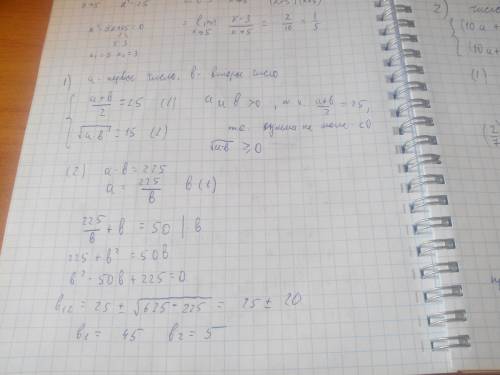 = lim x→5 (x-3)/(x+5) = 2/10 = 1/5
x₁=5 x₂=3
1) a - первое число, b - второе число
{ (a+b)/2 = 25 (1)
√(a·b) = 15 (2)
a и b >0, т.к. (a+b)/2 = 25,
<0
√(a·b) ≥ 0
(2) a·b = 225
a = 225/b в (1)
225/b + b = 50 | b
225 + b² = 50b
b² - 50b + 225 = 0
b₁,₂ = 25 ± √(625-225) = 25 ± 20
b₁ = 45 b₂ = 5
2) число
{ (10a +
(10a +
(1)